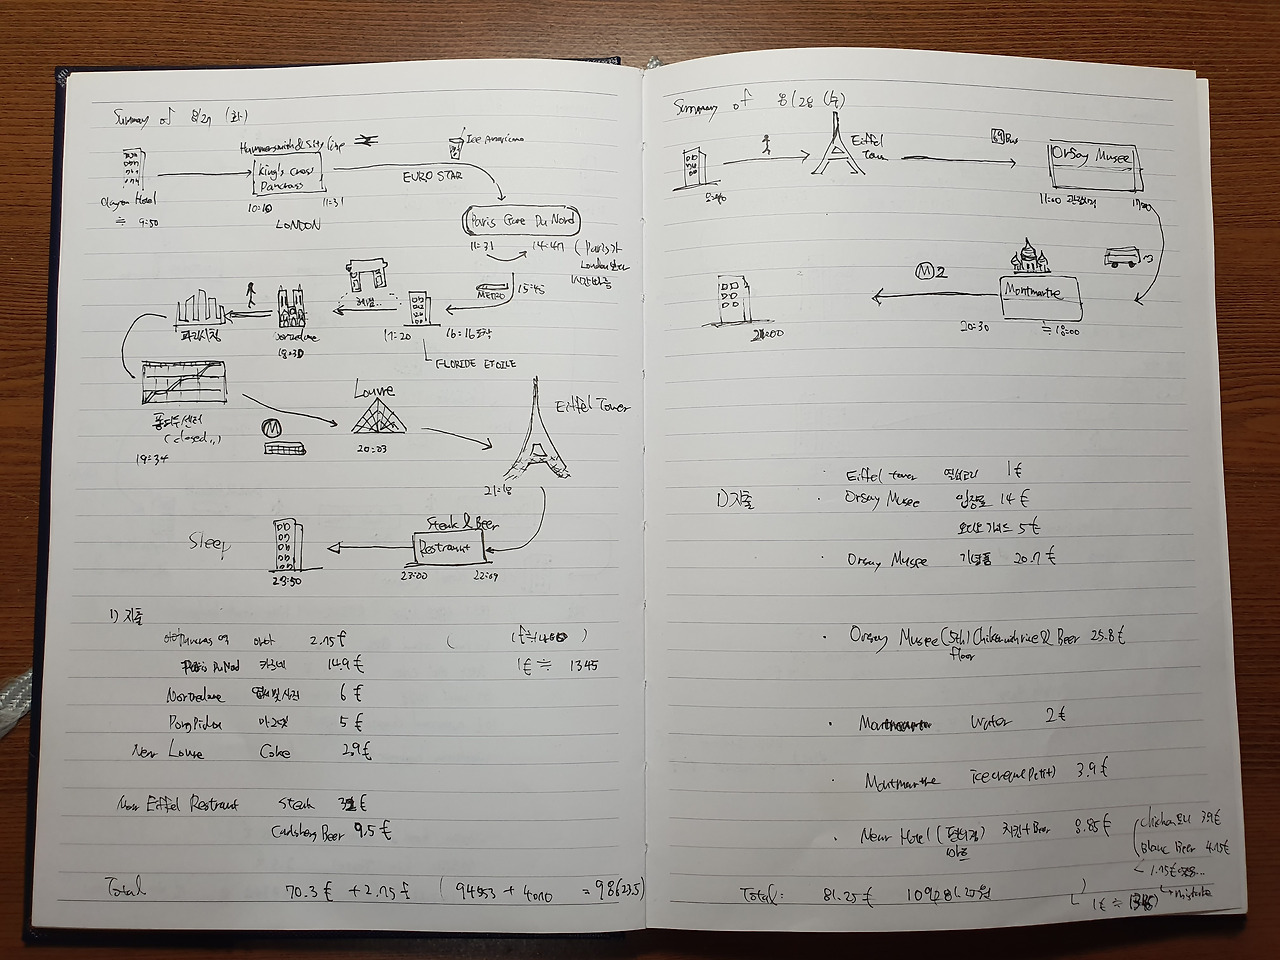 Summary of 8/27 (화)
Hammersmith & City line
Ice Americano
King's Cross
Pancrass
EURO STAR
Hotel
≒ 9:50
10:10
11:31
LONDON
Paris Gare Du Nord
11:31
14:47
(Paris가
London보다
1시간빠름
METRO
15:45
헤맴..
파리시청
Nortredame
18:30
17:20
16:16 도착
FLORIDE ETOILE
퐁피두센터
(closed..)
19:34
M
Louvre
20:03
Eiffel Tower
21:18
Sleep
Steak & Beer
Restraunt
23:50
23:00
22:09
1) 지출
2.75£
(1£≒1450)
Paris Du Nord 까르네 14.9€
1€ ≒ 1345
Nortredame 엽서및사진 6€
Pompidou 5€
Near Louvre Coke 2.9€
Near Eiffel Restraunt Steak 32€
Carlsberg Beer 9.5€
Total 70.3€ + 2.75£ (94553 + 4070 = 98623.5)
Summary of 8/28 (수)
Eiffel
Tower
69 Bus
Orsay Musee
11:00 관람시작
17:00
M2
Montmartre
20:30
≒ 18:00
21:00
1) 지출
· Eiffel tower 열쇠고리 1€
· Orsay Musee 입장료 14€
오디오가이드 5€
· Orsay Musee 기념품 20.7€
· Orsay Musee (5th) Chicken with rice & Beer 25.8€
floor
· Montmartre Water 2€
· Montmartre ice cream (Petit) 3.9€
· Near Hotel (편의점) 치킨+Beer 8.85€
Blanc Beer 4.75€
→ mistake
Total: 81.25€ 109281.25원
1€ ≒ 1345